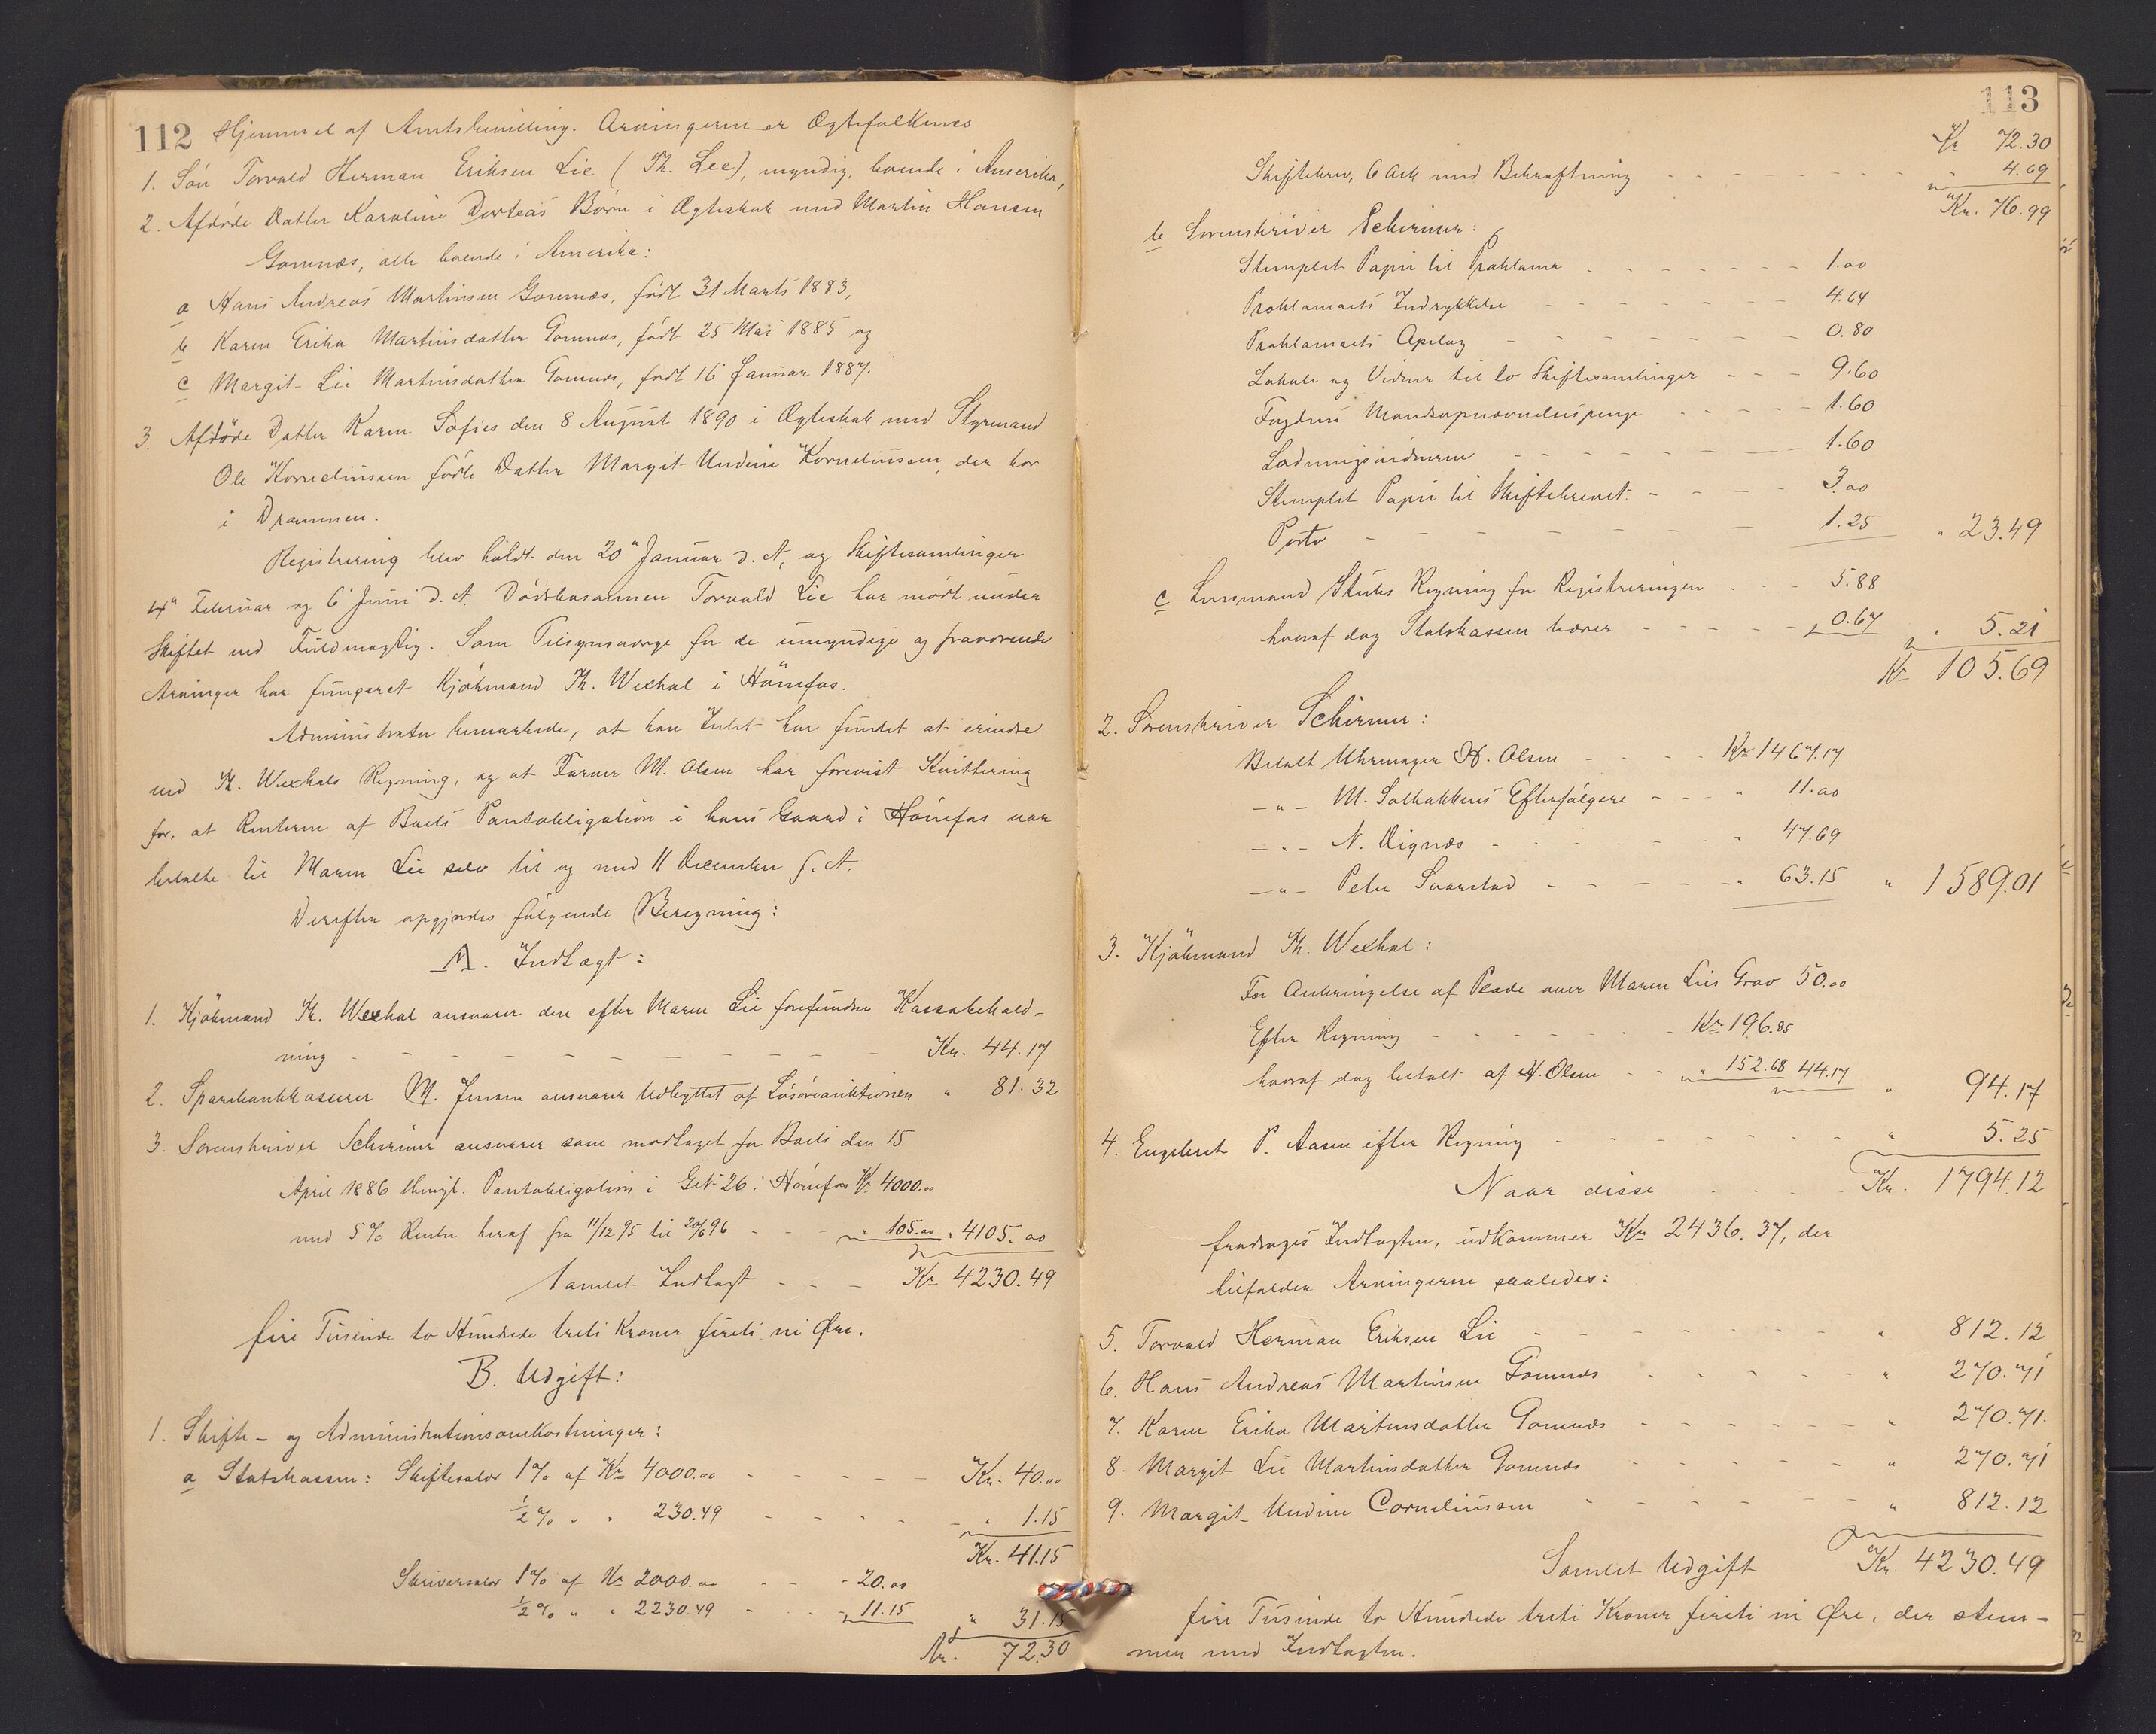 112 Hjemmel af Amtsbevilling. Arvingerne er Ægtefolkenes
1. Søn Torvald Herman Eriksen Lie (Th. Lee), myndig, boende i Amerika,
2. Afdøde Datter Karoline Dorteas Børn i Ægteskab med Martin Hansen
Gomnæs, alle boende i Amerika:
a Hans Andreas Martinsen Gomnæs, født 31 Marts 1883,
b Karen Erika Martinsdatter Gomnæs, født 25 Mai 1885 og
c Margit Lie Martinsdatter Gomnæs, født 16 Januar 1887.
3. Afdøde Datter Karen Sofies den 8 August 1890 i Ægteskab med Styrmand
Ole Korneliussen fødte Datter Margit Undine Korneliussen, der bor
i Drammen.
Registrering blev holdt den 20de Januar d. A, og Skiftesamlinger
4de Februar og 6 Juni d. A. Dødsbosønnen Torvald Lie har mødt under
Skiftet ved Fuldmægtig. Som Tilsynsværge for de umyndige og fraværende
Arvinger har fungeret Kjøbmand Th. Wexhal i Hønefos.
Administrator bemærkede, at han Intet har fundet at erindre
ved Th. Wexhals Regning, og at Farver M. Olsen har forevist Kvittering
for, at Renterne af Boets Pantobligation i hans Gaard i Hønefos var
betalte til Maren Lie selv til og med 11 December f. A.
Derefter opgjordes følgende Beregning:
A. Indtægt:
1. Kjøbmand Th. Wexhal ansvarer den efter Maren Lie forefundne Kassabehold-
ning - - - - - - - - - Kr. 44.17
2. Sparebankkasserer M. Jensen ansvarer Udbyttet af Løsøreauktionen " 81.32
3. Sorenskriver Schirmer ansvarer som modtaget for Boets den 15
April 1886 thingl. Pantobligation i Gt. No 26 i Hønefos Kr 4000.00
med 5 % Renter heraf fra 11/12 95 til 20/6 96 - - - " 105.00 " 4105.00
Samlet Indtægt - - - Kr 4230.49
fire Tusinde to Hundrede treti Kroner firti ni Øre.
B. Udgift:
1. Skifte- og Administrationsomkostninger:
a Statskassen: Skiftesalær 1% af Kr 4000.00 - - - - - Kr. 40.00
½ % " " 230.49 - - - - - " 1.15
Kr. 41.15
Skriversalær 1% af Kr 2000.00 - - - 20.00
½ % " " 2230.49 - - - " 11.15 " 31.15
Kr. 72.30
113
Kr 72.30
Skiftebrev, 6 Ark med Bekræftning - - - - - - - - " 4.69
Kr. 76.99
b Sorenskriver Schirmer:
Stemplet Papir til Proklama - - - - - - - 1.00
Proklamaets Indrykkelse - - - - - - - 4.64
Proklamaets Opslag - - - - - - - 0.80
Lokale og Vidner til to Skiftesamlinger - - - 9.60
Fogdens Mandsopnævnelsespenge - - - - - 1.60
Ladningsvidnerne - - - - - - - 1.60
Stemplet Papir til Skiftebrevet - - - - 3.00
Porto - - - - - - - 1.25 " 23.49
c Lensmand Stubs Regning for Registreringen - - - 5.88
hvoraf dog Statskassen bærer - - - - - " 0.67 " 5.21
Kr 105.69
2. Sorenskriver Schirmer:
Betalt Uhrmager H. Olsen - - - - Kr 1467.17
- " - M. Solbakkens Efterfølgere - - - " 11.00
- " - N. Vignæs - - - - - - " 47.69
- " - Peter Svarstad - - - - - " 63.15 " 1589.01
3. Kjøbmand Th. Wexhal:
For Anbringelse af Plade over Maren Lies Grav 50.00
Efter Regning - - - - - - Kr 196.85
hvoraf dog betalt af H. Olsen - - " 152.68 44.17 " 94.17
4. Engebret P. Aasen efter Regning - - - - - - - " 5.25
Naar disse . . . . Kr. 1794.12
fradrages Indtægten, udkommer Kr 2436.37, der
tilfalder Arvingerne saaledes:
5. Torvald Herman Eriksen Lie - - - - - - - " 812.12
6. Hans Andreas Martinsen Gomnæs - - - - - " 270.71
7. Karen Erika Martinsdatter Gomnæs - - - - - " 270.71.
8. Margit Lie Martinsdatter Gomnæs - - - - - " 270.71
9. Margit Undine Corneliussen - - - - - - " 812.12
Samlet Udgift Kr. 4230.49
fire Tusinde to Hundrede treti Kroner fireti ni Øre, der stem-
mer med Indtægten.